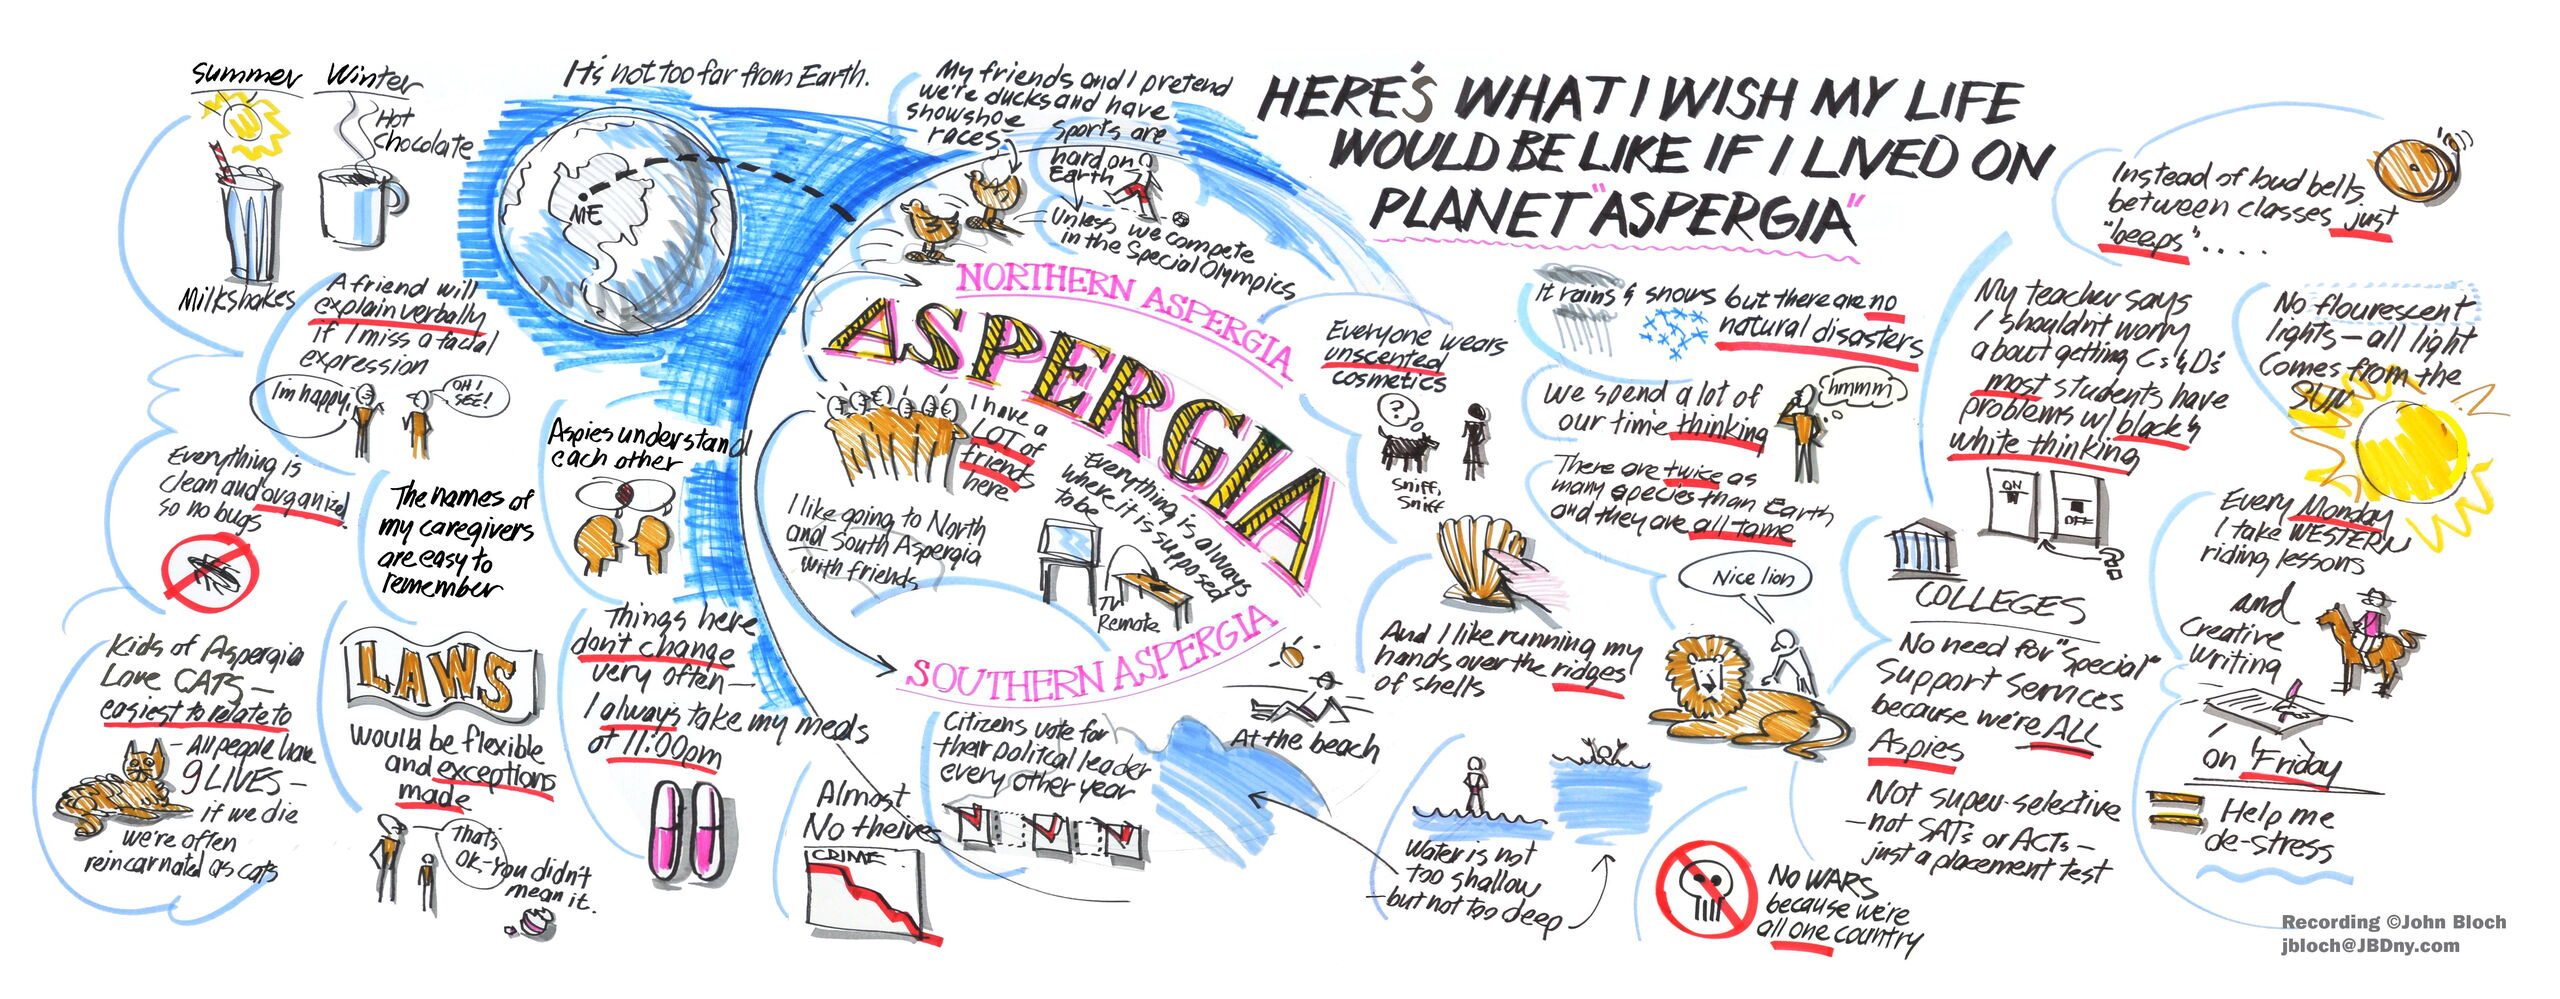 HERE'S WHAT I WISH MY LIFE
WOULD BE LIKE IF I LIVED ON
PLANET "ASPERGIA"
Summer
Winter
Hot
Chocolate
Milkshakes
A friend will
explain verbally
if I miss a facial
expression
I'm happy.
OH I
SEE!
Everything is
clean and organized
so no bugs
The names of
my caregivers
are easy to
remember
Kids of Aspergia
Love CATS -
easiest to relate to
- All people have
9 LIVES -
if we die
we're often
reincarnated as cats
LAWS
would be flexible
and exceptions
made
That's
OK - You didn't
mean it.
It's not too far from Earth.
ME
Aspies understand
each other
Things here
don't change
very often -
I always take my meds
at 11:00pm
My friends and I pretend
we're ducks and have
snowshoe
races
Sports are
hard on
Earth
Unless we compete
in the Special Olympics
NORTHERN ASPERGIA
ASPERGIA
I have a
LOT of
friends
here
I like going to North
and South Aspergia
with friends
Everything is always
where it is supposed
to be
TV
Remote
SOUTHERN ASPERGIA
At the beach
Citizens vote for
their political leader
every other year
Almost
No theives
CRIME
Everyone wears
unscented
cosmetics
?
Sniff,
Sniff
And I like running my
hands over the ridges
of shells
Water is not
too shallow
- but not too deep
It rains & snows but there are no
natural disasters
We spend a lot of
our time thinking
hmmm
There are twice as
many species than Earth
and they are all tame
Nice lion
No WARS
because we're
all one country
Instead of loud bells
between classes just
"beeps"....
My teacher says
I shouldn't worry
about getting C's & D's
most students have
problems w/ black &
white thinking
ON
OFF
COLLEGES
No need for "Special"
Support Services
because we're ALL
Aspies
Not super-selective
- not SATs or ACTs -
just a placement test
No flourescent
lights - all light
comes from the
SUN
Every Monday
I take WESTERN
riding lessons
and
Creative
Writing
on Friday
Help me
de-stress
Recording ©John Bloch
jbloch@JBDny.com